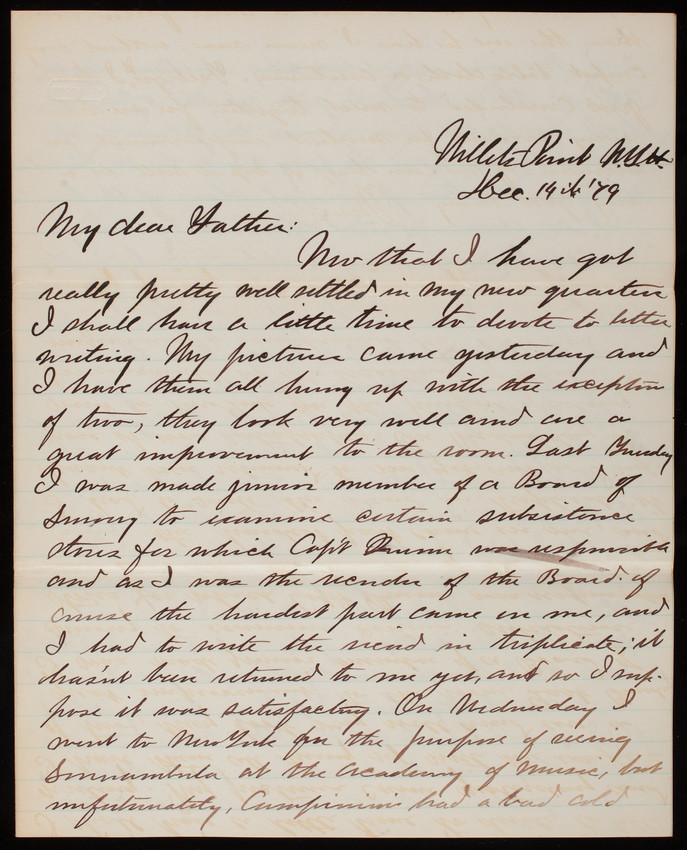 Willets Point N.Y.H.
Dec. 14th '79
My dear Father:
Now that I have got
really pretty well settled in my new quarters
I shall have a little time to devote to letter
writing. My pictures came yesterday and
I have them all hung up with the exception
of two, they look very well and are a
great improvement to the room. Last Tuesday
I was made junior member of a Board of
Survey to examine certain subsistence
stores for which Cap't Quinn was responsible
and as I was the recorder of the Board of
course the hardest part came on me, and
I had to write the record in triplicate; it
hasn't been returned to me yet, and so I sup-
pose it was satisfactory. On Wednesday I
went to New York for the purpose of seeing
Sonnambula at the Academy of Music, but
unfortunately, Campinini had a bad cold